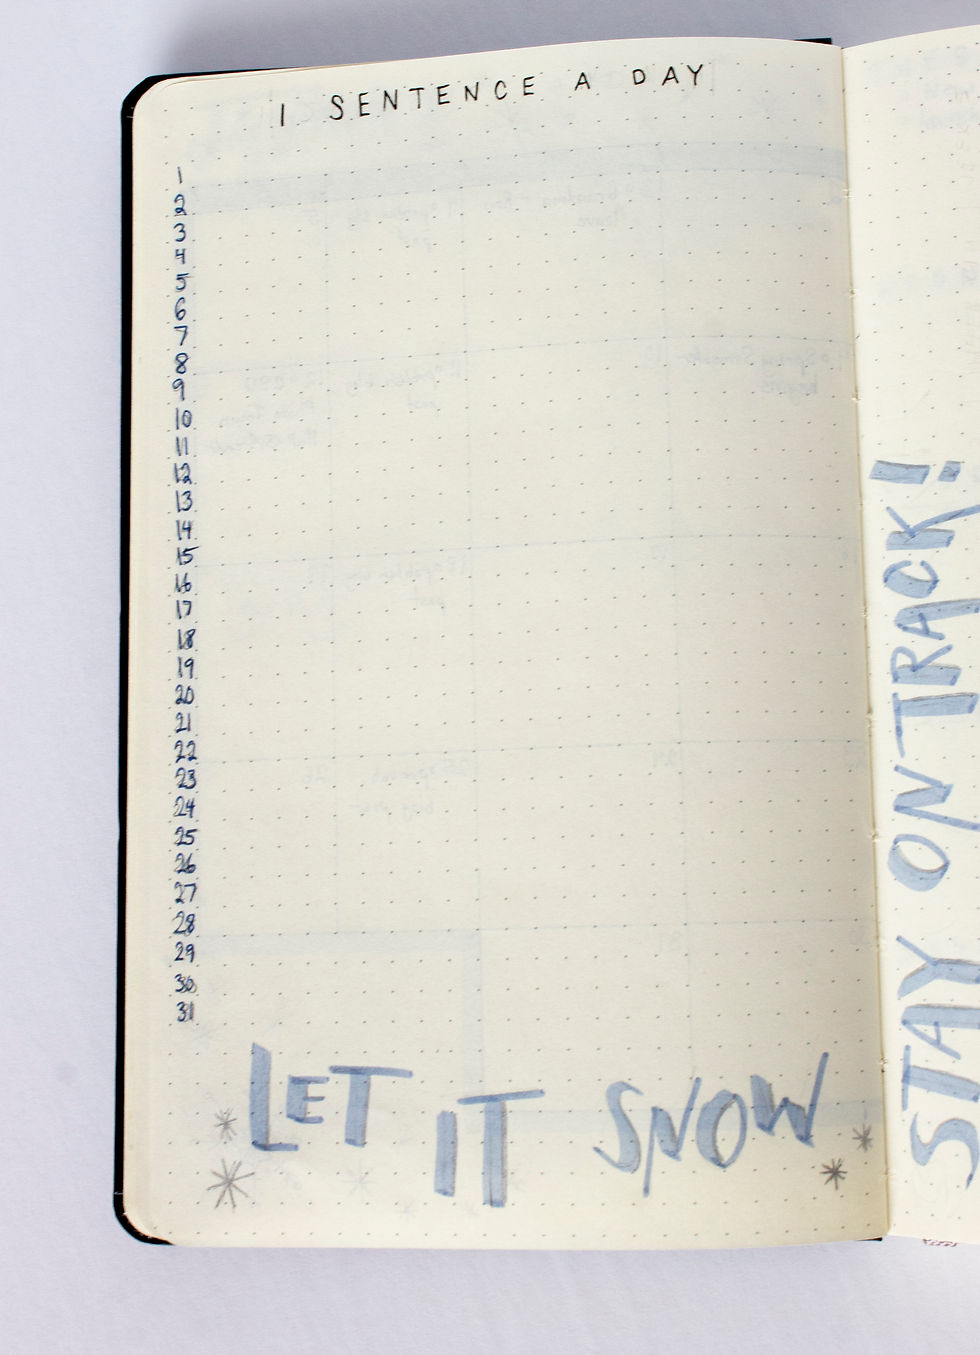 1 SENTENCE A DAY
1
2
3
4
5
6
7
8
9
10
11
12
13
14
15
16
17
18
19
20
21
22
23
24
25
26
27
28
29
30
31
LET IT SNOW
STAY ON TRACK!